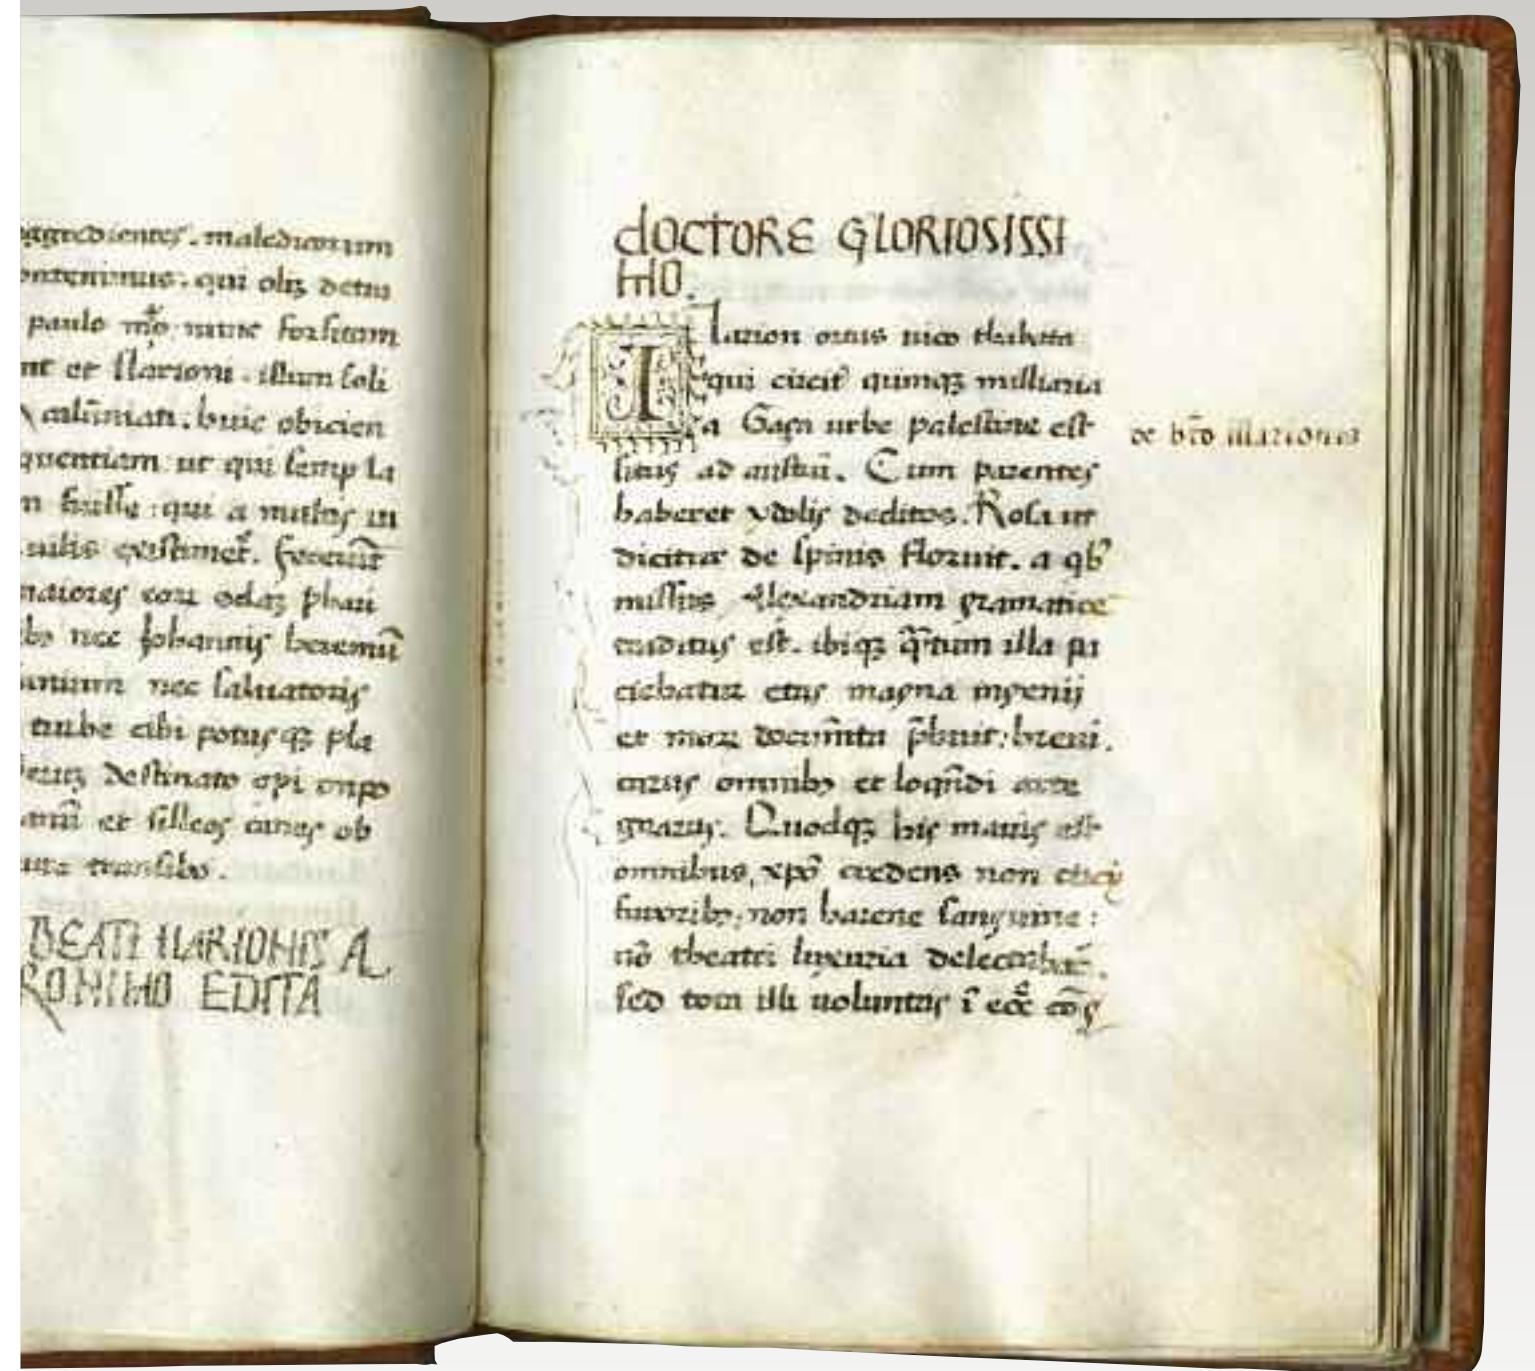 agredientes. maledicorum
contenimus. qui oliz detra
paulo mͦo. nunc forsitam
nt et Ilarioni. illum soli
calūniati. huic obicien
quentiam ut qui semp la
n fuisse: qui a multis ui
uilis existimet̄. fecerūt
maiores eoꝝ odaꝫ phari
nec Johannis heremū
nec saluatoris
turbe cibi potusqꝫ pla
destinato opi inpo
et silleos canes ob
ure transibo.
BEATI ILARIONIS A
RONIMO EDITA
dOCTORE GLORIOSISSI
MO.
Ilarion ortus uico thabata
qui circit̄ quinqꝫ milliaria
a Gaça urbe palestine est
situs ad austrū. Cum parentes
haberet ydolis deditos. Rosa ut
dicitur de spinis floruit. a qb᾽
missus Alexandriam gramatice
traditus est. ibiqꝫ q̄ntum illa pa
ciebatur etas magna ingenij
et moꝝ docum̄ta p̄buit: breui.
carus omnibꝫ et loqn̄di arte
gnarus. Quodqꝫ his maius est
omnibus, xpō credens non circ̄j
furoribꝫ. non harene sanguine:
nō theatri luxuria delectabat̄.
sed tota illi uoluntas ī ecc̄ie
de btō illarionis